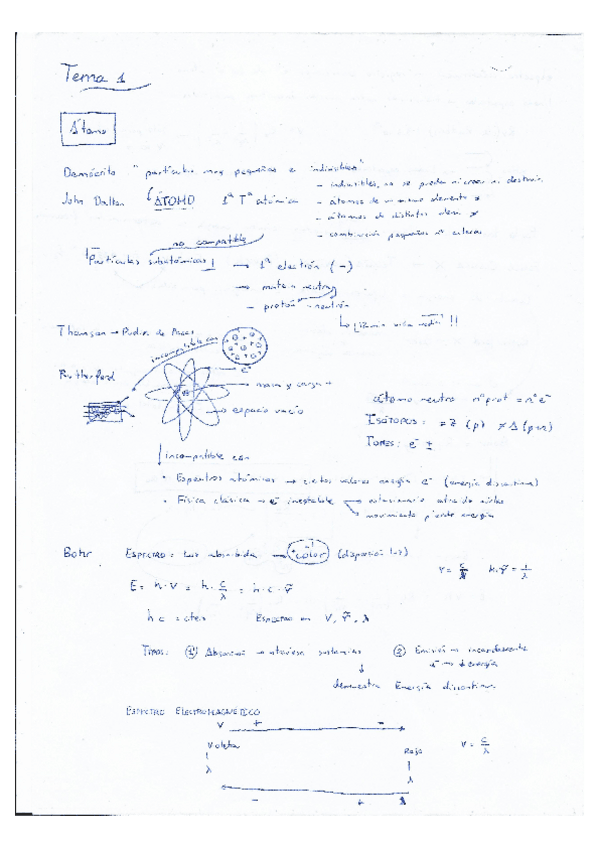 Tema 1
Átomo
Demócrito "partículas muy pequeñas e indivisibles"
John Dalton ÁTOMO 1ª Tª atómica - indivisibles, no se pueden ni crear ni destruir.
- átomos de un mismo elemento =
- átomos de distintos elem. ≠
- combinación pequeños nº enteros
no compatible
Partículas subatómicas! → 1º electrón (-)
→ materia neutra
- protón neutrón
Thomson → Pudin de Pasas
incompatible con
e-
Rutherford
masa y carga +
espacio vacío
átomo neutro nº prot = nº e-
ISÓTOPOS: = Z (p) ≠ A (p+n)
IONES: e- ±
incompatible con
• Espectros atómicos → ciertos valores energía e- (energía discontinua)
• Física clásica → e- inestable
movimiento pierde energía
Bohr ESPECTRO: luz absorbida → color
E = h·ν = h·c/λ = h·c·ν̃
h c = ctes ESPECTRO en ν, ν̃, λ
TIPOS: ① Absorción → atraviesa sustancias ② Emisión
demuestra Energía discontinua
ESPECTRO ELECTROMAGNÉTICO
ν + -
Violeta Rojo
ν = c/λ
λ λ
- + λ